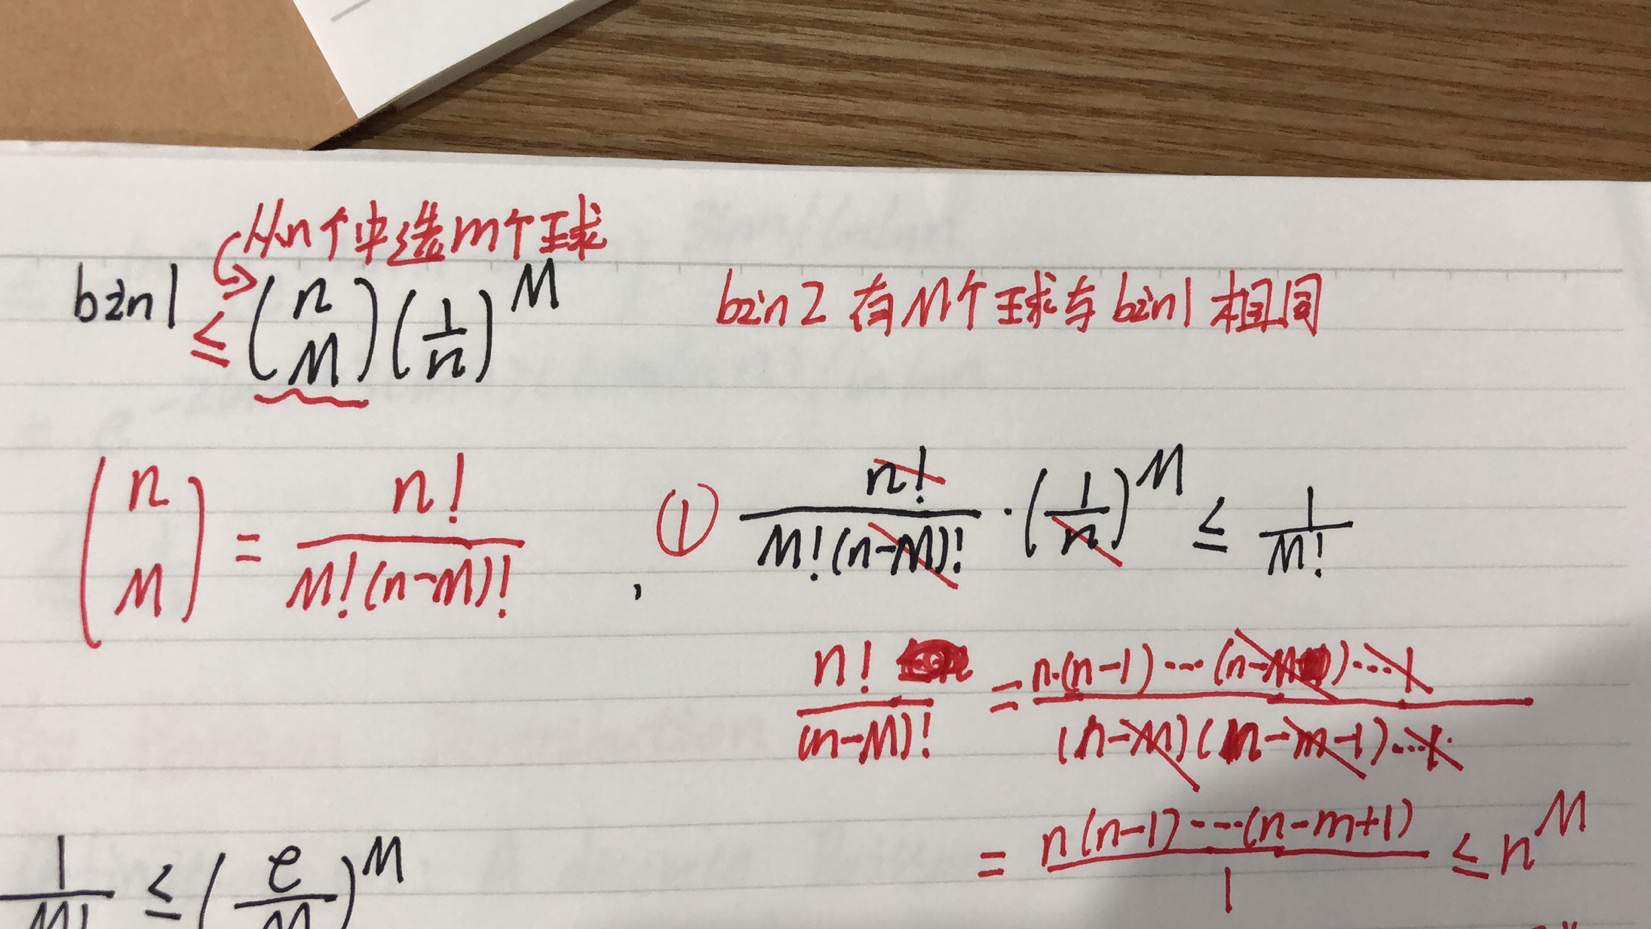 从n个中选m个球
bin1 ≤ (n M) (1/n)^M
bin2 有M个球与bin1相同
(n M) = n! / M!(n-M)! , ① n! / M!(n-M)! · (1/n)^M ≤ 1/M!
n! / (n-M)! = n·(n-1)···(n-M)···1 / (n-M)(n-m-1)···1
= n(n-1)···(n-m+1) / 1 ≤ n^M
1/M! ≤ (e/M)^M